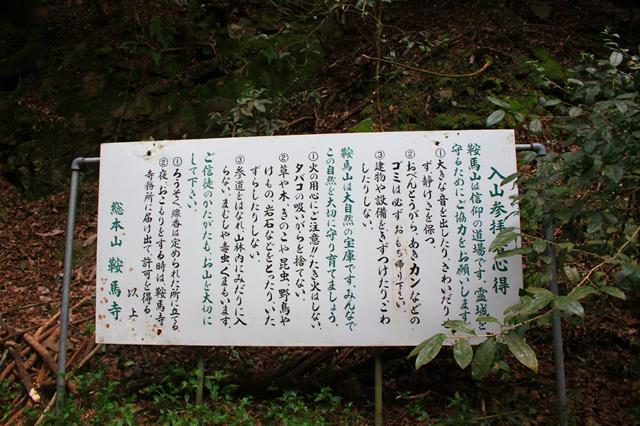 入山参拝者心得
鞍馬山は信仰の道場です。霊域を
守るためにご協力をお願いします。
①大きな音を出したり、さわいだりせ
ず、静けさを保つ。
②おべんとうがら、あきカンなどの
ゴミは必ずおもち帰り下さい。
③建物や設備をきずつけたり、こわ
したりしない。
鞍馬山は大自然の宝庫です。みんなで
この自然を大切に守り育てましょう。
①火の用心にご注意!!たき火はしない。
タバコの吸いがらを捨てない。
②草や木、きのこや、昆虫、野鳥や
けもの、岩石などをとったり、いた
ずらしたりしない。
③参道をはなれて林内にみだりに入
らない。まむしや毒虫、くまもいます。
ご信徒のかたがたも、お山を大切に
して下さい。
①ろうそく、線香は定められた所に立てる。
②夜、おこもりをする時は、鞍馬寺
寺務所に届け出て許可を得る。
以上
総本山 鞍馬寺